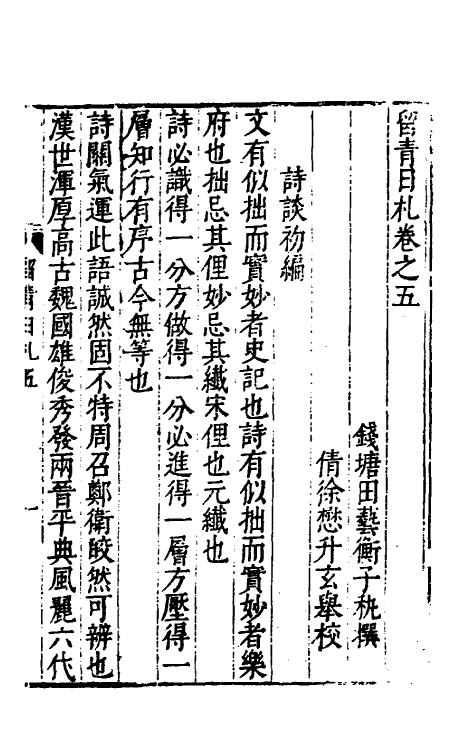 留青日札卷之五
錢塘田藝衡子秇撰
倩徐懋升玄舉校
詩談初編
文有似拙而實妙者史記也詩有似拙而實妙者樂
府也拙忌其俚妙忌其纖宋俚也元纖也
詩必識得一分方做得一分必進得一層方壓得一
層知行有序古今無等也
詩關氣運此語誠然固不特周召鄭衛皎然可辨也
漢世渾厚高古魏國雄俊秀發兩晉平典風麗六代
留青日札五
一